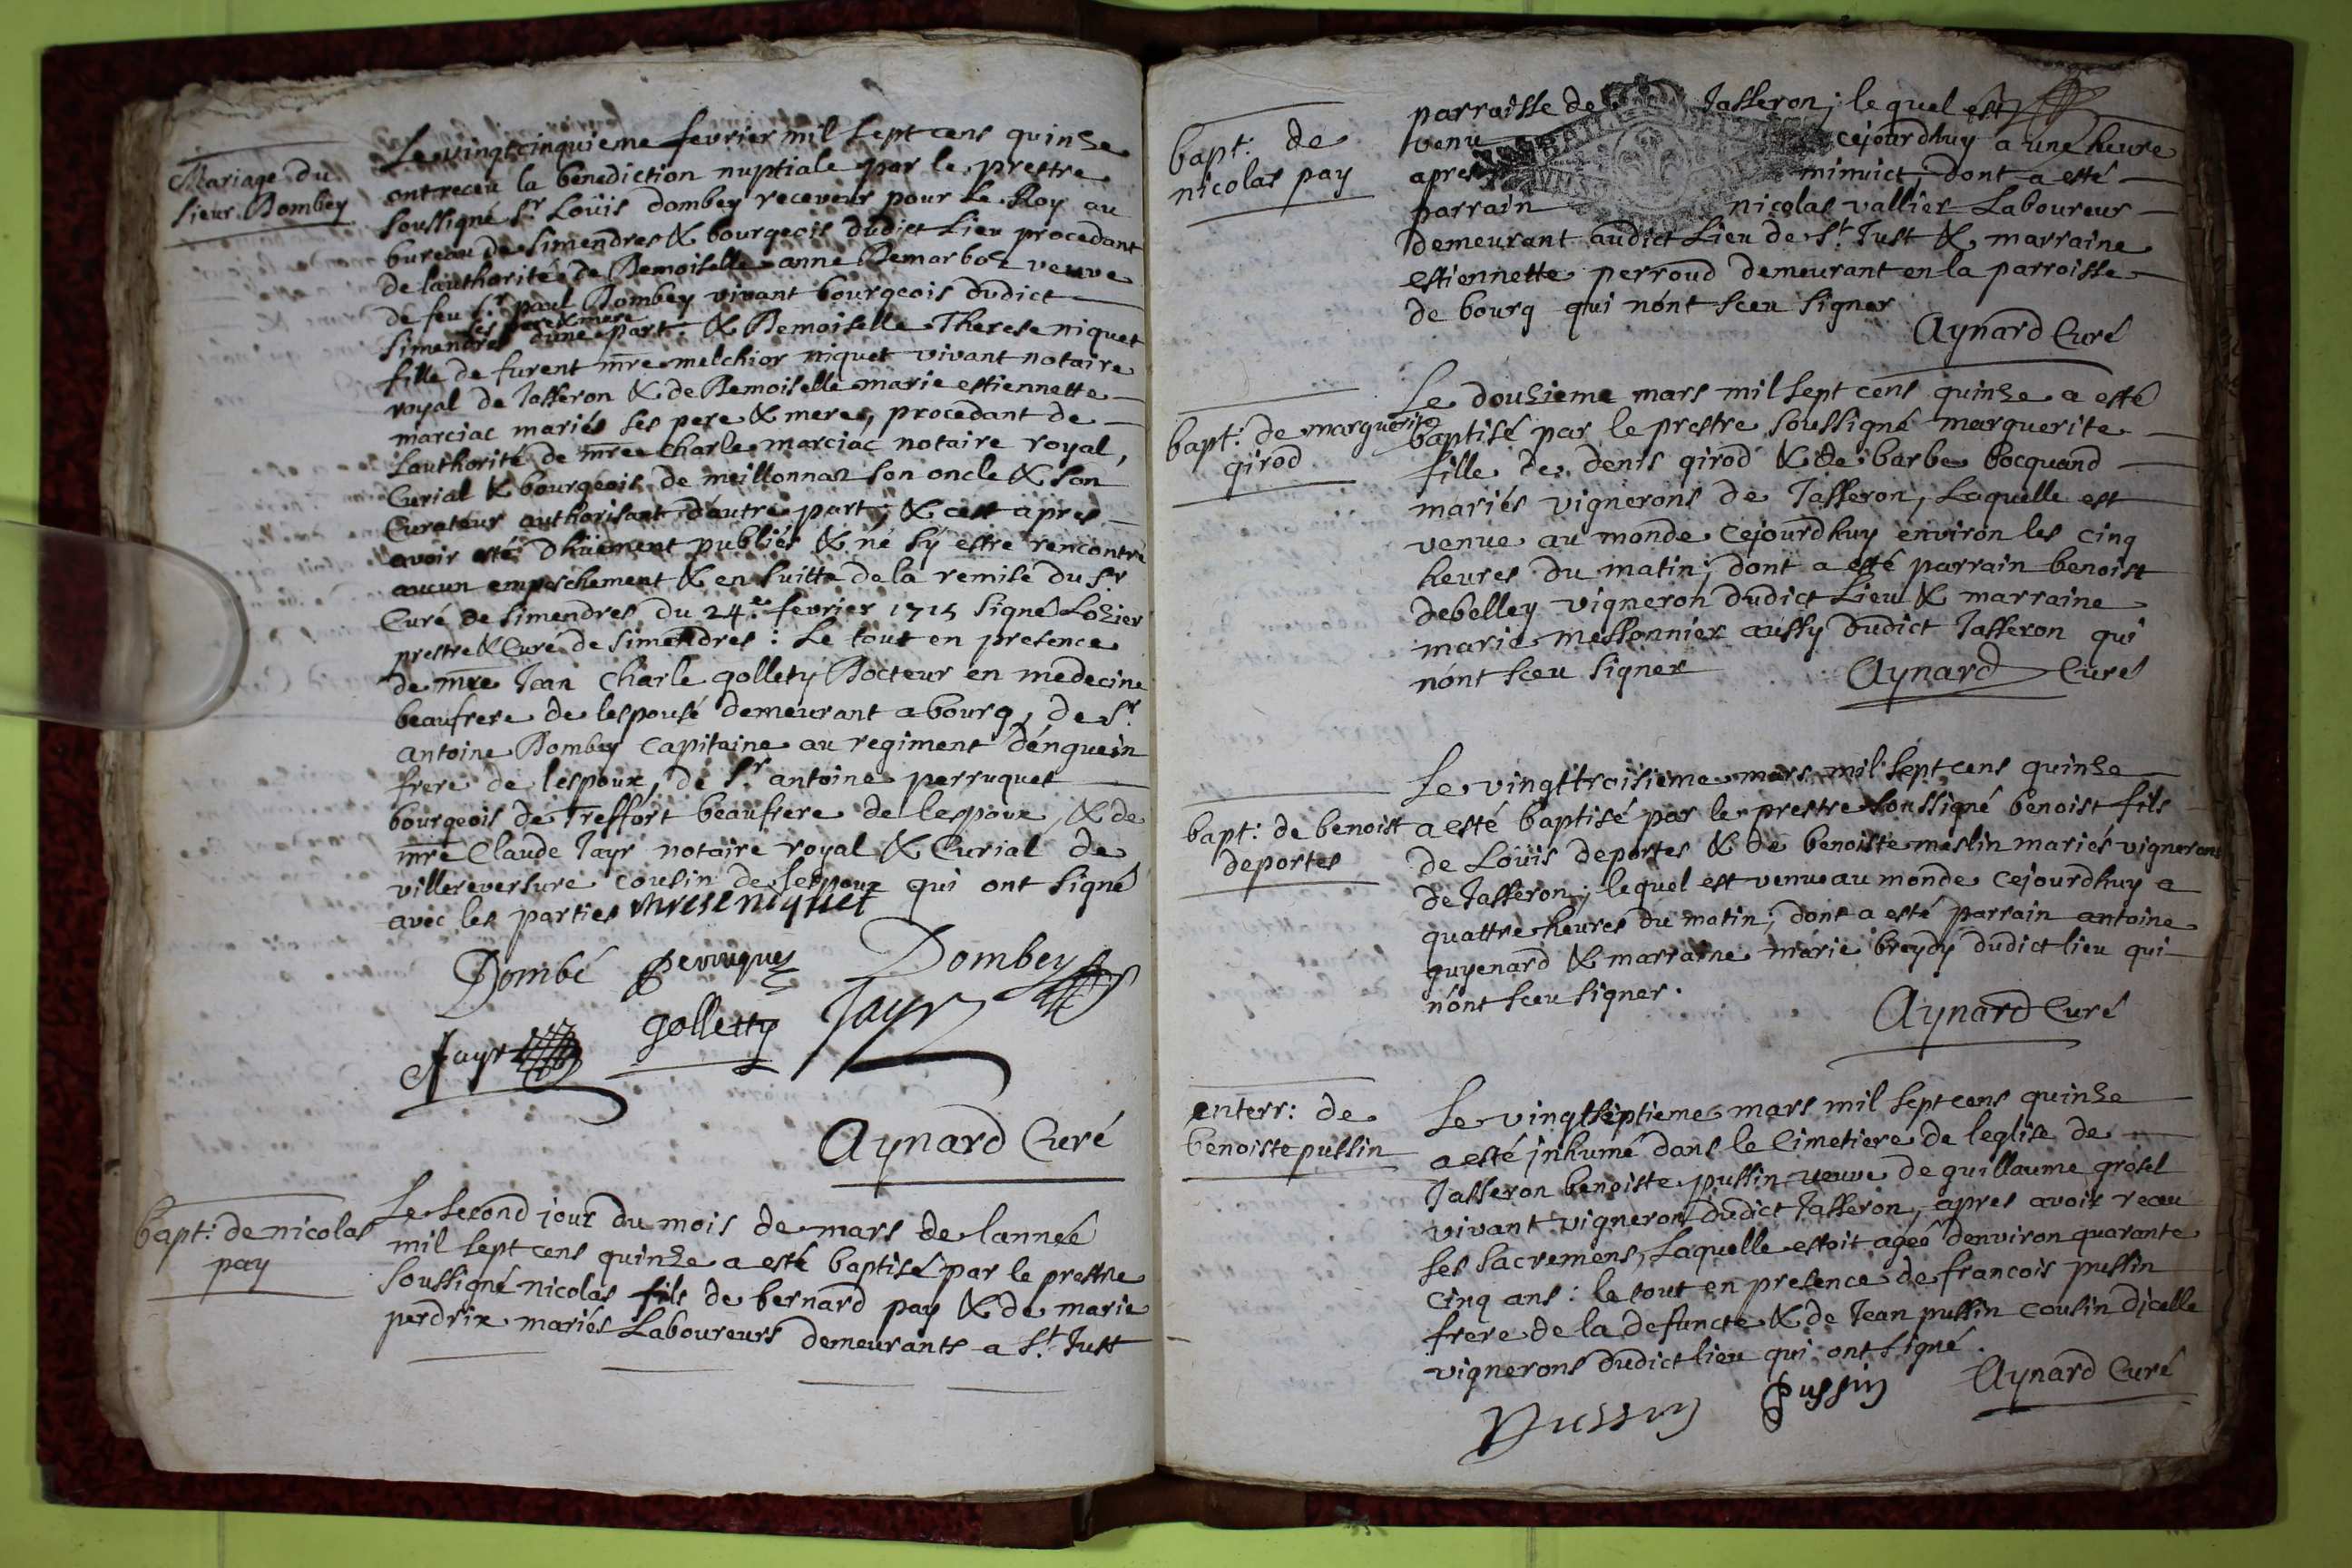 Mariage du
sieur Dombey
Le vingtcinquieme fevrier mil sept cens quinze
ont receu la benediction nuptiale par le prestre
soussigné Sr Loüis Dombey receveur pour Le Roy au
bureau de Simendres & bourgeois dudict Lieu procedant
de l'authorité de Demoiselle anne Demarboz veuve
de feu Sr paul Dombey vivant bourgeois dudict
ses pere & mere
Simendres d'une part. & Demoiselle Therese niquet
fille de furent mre melchior niquet vivant notaire
royal de Jasseron & de Demoiselle marie estiennette
marciac mariés ses pere & mere, procedant de
Lauthorité de mre Charle marciac notaire royal,
Curial & bourgeois de meillonnaz son oncle & son
Curateur authorisant d'autre part, & cest apres
avoir esté dhüement publiés & ne s'y estre rencontré
aucun empeschement & en suitte de la remise du Sr
Curé de Simendres du 24e fevrier 1715 signé Lozier
prestre & Curé de Simendres : Le tout en presence
de mre Jean Charle gollety Docteur en medecine
beaufrere de lespousé demeurant a bourg, de Sr
antoine Dombey Capitaine au regiment d'enguein
frere de lespoux, de Sr antoine perruquet
bourgeois de Treffort beaufrere de lespoux, & de
mre Claude Jayr notaire royal & Curial de
villereversure cousin de lespoux qui ont signé
avec les parties therese niquet
Dombé perruquet Dombey
Jayr golletty Jayr
Aynard Curé
bapt: de nicolas
pay
Le second jour du mois de mars de lanneé
mil sept cens quinze a esté baptisé par le prestre
soussigné nicolas fils de bernard pay & de marie
perdrix mariés Laboureurs demeurants a St Just
bapt: de
nicolas pay
parroisse de Jasseron; le quel est
venu cejourdhuy a une heure
apres minuict; dont a esté
parrain nicolas vallier Laboureur
demeurant audict Lieu de St Just & marraine
estiennette perroud demeurant en la parroisse
de bourg qui n'ont sceu signer
Aynard Curé
bapt: de marguerite
girod
Le douzieme mars mil sept cens quinze a esté
baptisé par le prestre soussigné marguerite
fille de denis girod & de barbe bocquand
mariés vignerons de Jasseron, Laquelle est
venue au monde cejourdhuy environ les cinq
heures du matin; dont a esté parrain benoist
debelley vigneron dudict Lieu & marraine
marie messonnier aussy dudict Jasseron qui
n'ont sceu signer Aynard Curé
bapt: de benoist
deportes
Le vingttroisieme mars mil sept cens quinze
a esté baptisé par le prestre soussigné benoist fils
de Loüis deportes & de benoiste meslin mariés vignerons
de Jasseron; lequel est venu au monde cejourdhuy a
quattre heures du matin; dont a esté parrain antoine
guyenard & marraine marie breydy dudict lieu qui
n'ont sceu signer.
Aynard Curé
enterr: de
benoiste pussin
Le vingtseptieme mars mil sept cens quinze
a esté jnhumé dans le Cimetiere de leglise de
Jasseron benoiste pussin veuve de guillaume grosel
vivant vigneron dudict Jasseron, apres avoir receu
ses sacremens, Laquelle estoit ageé denviron quarante
Cinq ans: le tout en presence de francois pussin
frere de la defuncte & de Jean pussin cousin djcelle
vignerons dudict lieu qui ont signé.
Pussin Pussin Aynard Curé